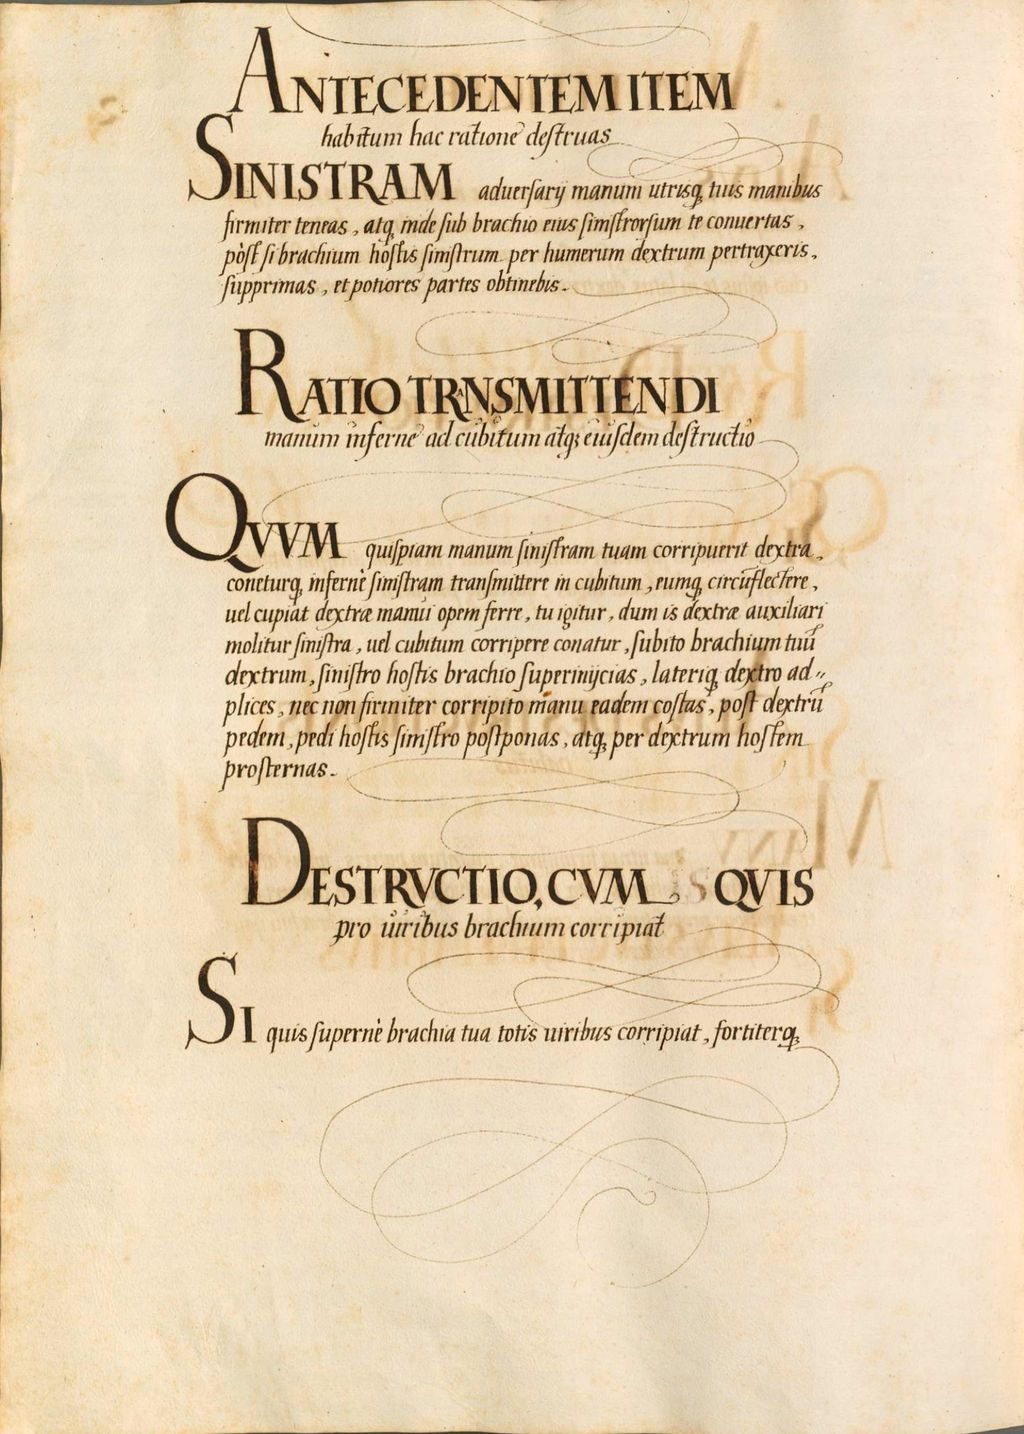 ANTECEDENTEM ITEM
habitum hac ratione destruas
SINISTRAM adversarij manum utrisq; tuis manibus
firmiter teneas, atq; inde sub brachio eius sinistrorsum te conuertas,
pòst si brachium hostis sinistrum per humerum dextrum pertraxeris,
supprimas, et potiores partes obtinebis.
RATIO TRANSMITTENDI
manum infernè ad cubitum atq; eiusdem destructio
QVVM quispiam manum sinistram tuam corripuerit dextra,
coneturq; infernè sinistram transmittere in cubitum, eumq; circūflectere,
uel cupiat dextræ manui opem ferre, tu igitur, dum is dextræ auxiliari
molitur sinistra, uel cubitum corripere conatur, subito brachium tuū
dextrum, sinistro hostis brachio superinijcias, lateriq; dextro ad⸗
plices, nec non firmiter corripito manu eadem costas, post dextrū
pedem, pedi hostis sinistro postponas, atq; per dextrum hostem
prosternas.
DESTRVCTIO, CVM QVIS
pro uiribus brachium corripiat
SI quis supernè brachia tua totis uiribus corripiat, fortiterq;